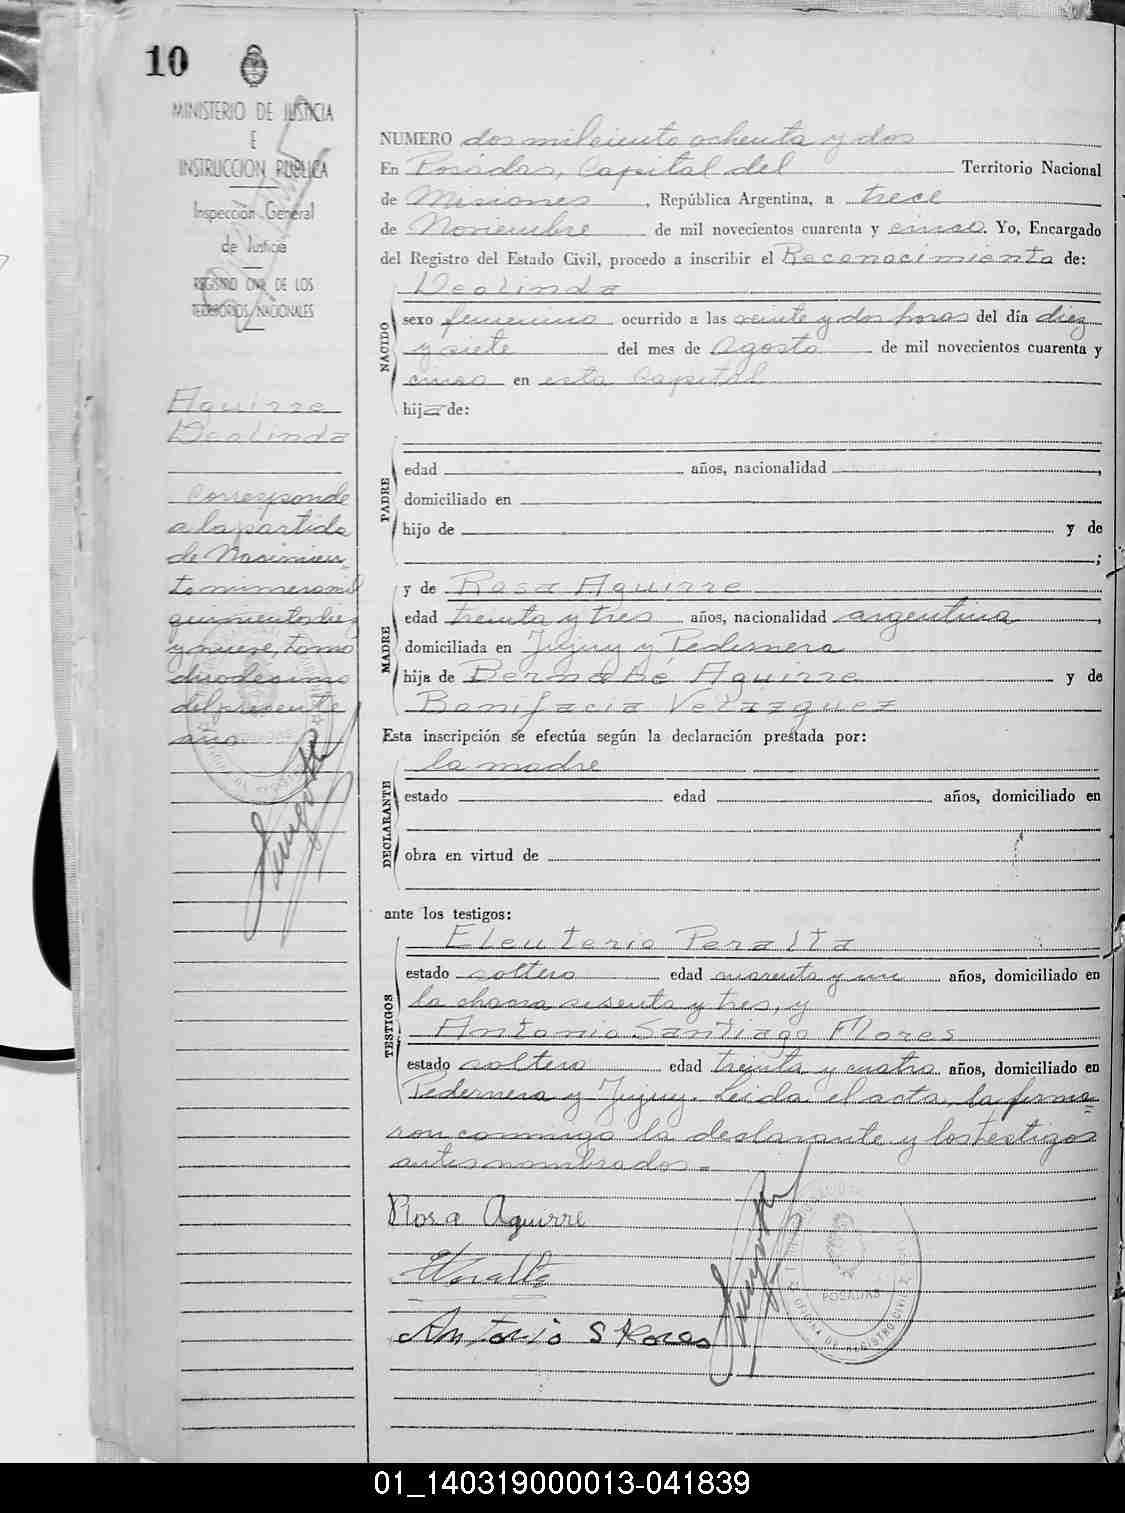 10
MINISTERIO DE JUSTICIA
E
INSTRUCCION PUBLICA
Inspección General
de Justicia
REGISTRO CIVIL DE LOS
TERRITORIOS NACIONALES
Aguirre
Deolinda
Corresponde
a la partida
de Nacimien
to número mil
quinientos diez
y nueve, tomo
duodesimo
del presente
año
NUMERO dos mil ciento ochenta y dos
En Posadas, Capital del Territorio Nacional
de Misiones, República Argentina, a trece
de Noviembre de mil novecientos cuarenta y cinco. Yo, Encargado
del Registro del Estado Civil, procedo a inscribir el Reconocimiento de:
Deolinda
NACIDO
sexo femenino ocurrido a las veinte y dos horas del día diez
y siete del mes de Agosto de mil novecientos cuarenta y
cinco en esta Capital
hija de:
PADRE
edad años, nacionalidad ,
domiciliado en
hijo de y de
;
MADRE
y de Rosa Aguirre
edad treinta y tres años, nacionalidad argentina,
domiciliada en Jujuy y Pedernera
hija de Bernabé Aguirre y de
Bonifacia Velazquez
Esta inscripción se efectúa según la declaración prestada por:
la madre
DECLARANTE
estado edad años, domiciliado en
obra en virtud de
ante los testigos:
TESTIGOS
Eleuterio Peralta
estado soltero edad cuarenta y un años, domiciliado en
la chacra sesenta y tres, y
Antonio Santiago Flores
estado soltero edad treinta y cuatro años, domiciliado en
Pedernera y Jujuy. Leida el acta, la firma=
ron conmigo la declarante y los testigos
antes nombrados.=
Rosa Aguirre
EPeralta
Antonio S Flores
POSADAS
OFICINA DE REGISTRO CIVIL
01_140319000013-041839